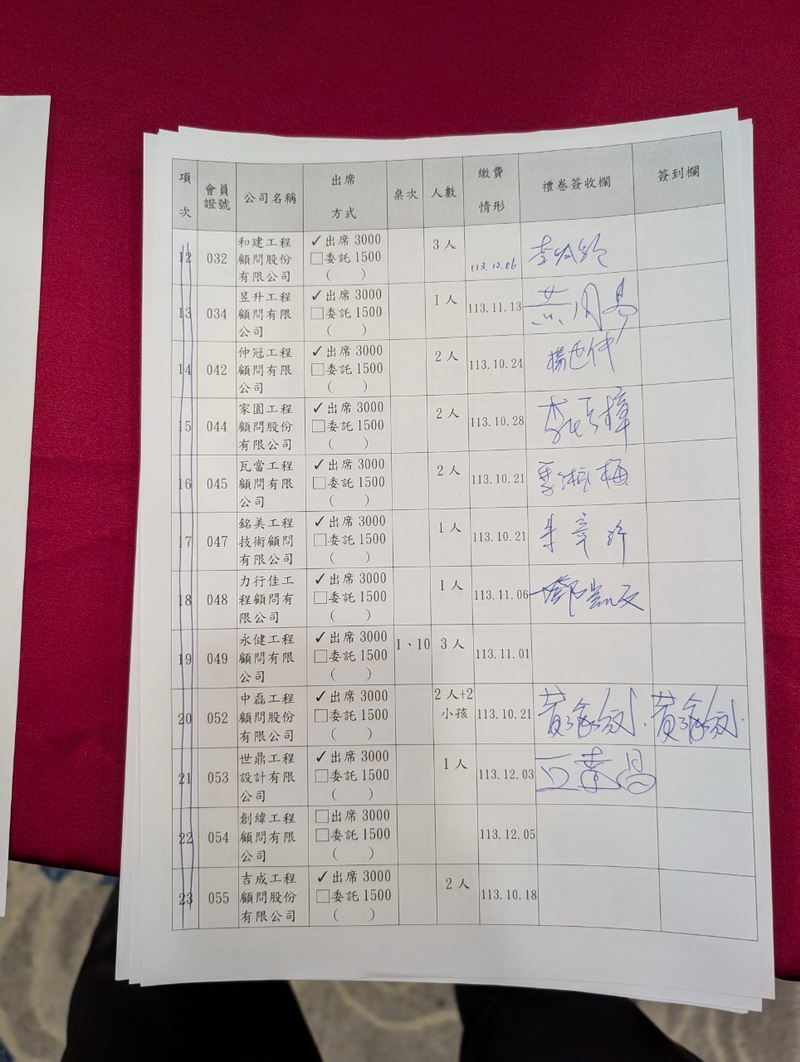 項次 會員證號 公司名稱 出席方式 桌次 人數 繳費情形 禮卷簽收欄 簽到欄
12 032 和建工程顧問股份有限公司 ✓出席3000 □委託1500 ( ) 3人 113.12.06
13 034 昱升工程顧問有限公司 ✓出席3000 □委託1500 ( ) 1人 113.11.13
14 042 仲冠工程顧問有限公司 ✓出席3000 □委託1500 ( ) 2人 113.10.24 楊世仲
15 044 家園工程顧問股份有限公司 ✓出席3000 □委託1500 ( ) 2人 113.10.28
16 045 瓦當工程顧問有限公司 ✓出席3000 □委託1500 ( ) 2人 113.10.21
17 047 銘美工程技術顧問有限公司 ✓出席3000 □委託1500 ( ) 1人 113.10.21
18 048 力行佳工程顧問有限公司 ✓出席3000 □委託1500 ( ) 1人 113.11.06
19 049 永健工程顧問有限公司 ✓出席3000 □委託1500 ( ) 1、10 3人 113.11.01
20 052 中磊工程顧問股份有限公司 ✓出席3000 □委託1500 ( ) 2人+2小孩 113.10.21
21 053 世鼎工程設計有限公司 ✓出席3000 □委託1500 ( ) 1人 113.12.03
22 054 創緯工程顧問有限公司 □出席3000 □委託1500 ( ) 113.12.05
23 055 吉成工程顧問股份有限公司 ✓出席3000 □委託1500 ( ) 2人 113.10.18